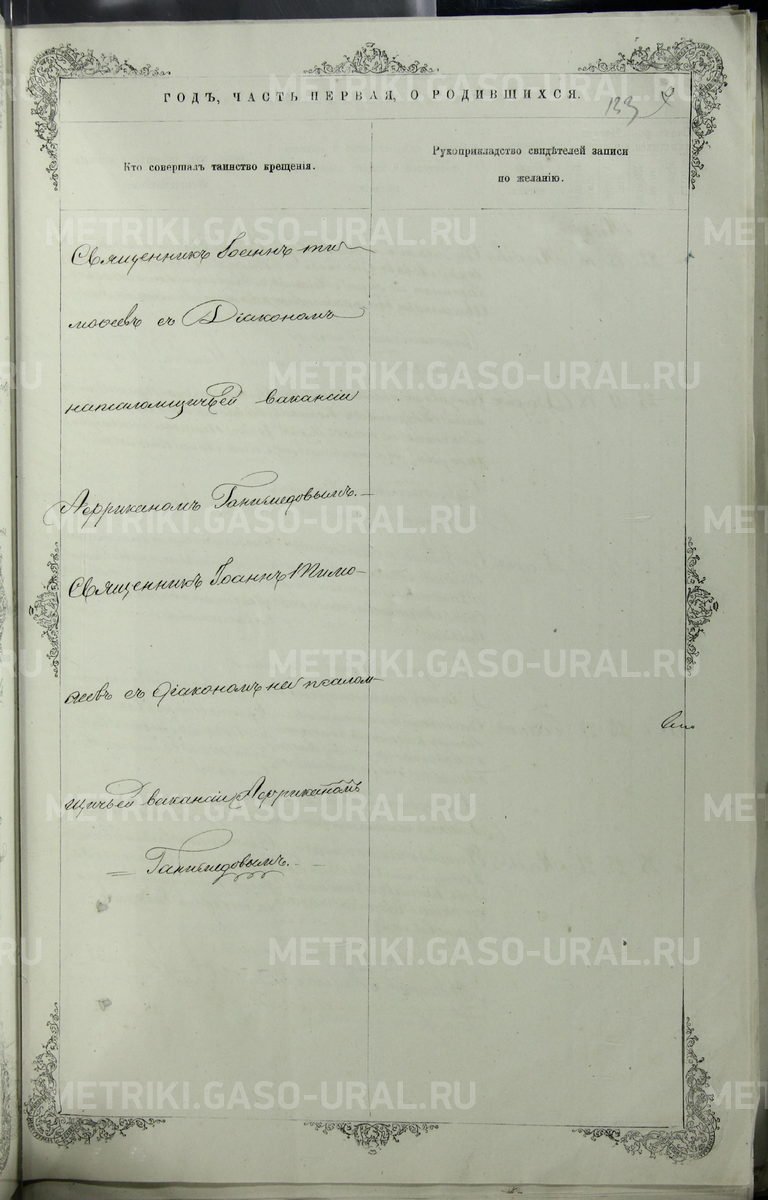 ГОДЪ, ЧАСТЬ ПЕРВАЯ, О РОДИВШИХСЯ.
133
Кто совершалъ таинство крещенія.
Рукоприкладство свидѣтелей записи
по желанію.
Священникъ Іоаннъ Ти
моѳеевъ съ Діакономъ
на псаломщичьей вакансіи
Африканомъ Ганимедовымъ.
Священникъ Іоаннъ Тимо-
ѳеевъ съ діакономъ на псалом
щичьей вакансіи Африканомъ
Ганимедовымъ.
METRIKI.GASO-URAL.RU